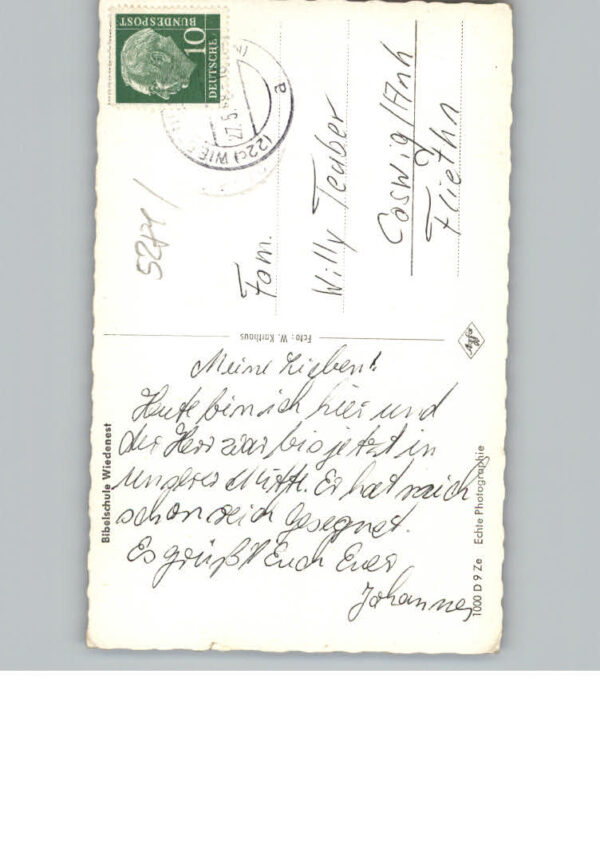 Meine Lieben!
Heute bin ich hier und
der Herr war bis jetzt in
unserer Mitte. Er hat mich
schon reich gesegnet.
Es grüßt Euch Euer
Johannes
Fam.
Willy Teuber
Coswig/Anh
Fliethn
Bibelschule Wiedenest
Foto: W. Karthaus
1000 D 9 Ze Echte Photographie
DEUTSCHE
BUNDESPOST
10
(22c) WIE
27.5.
a